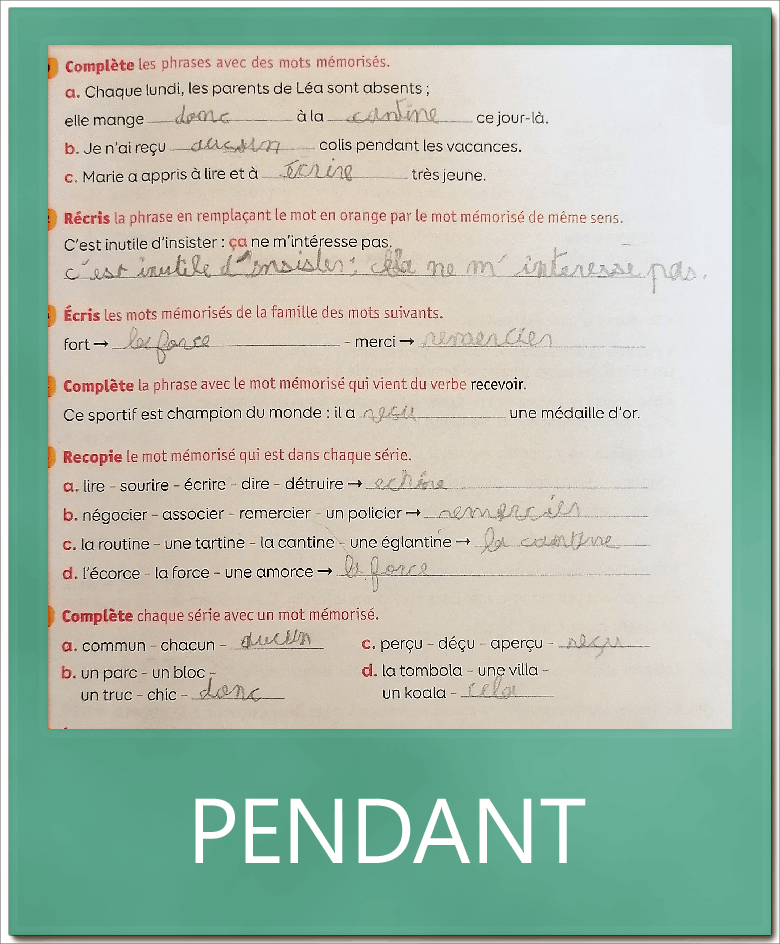 Complète les phrases avec des mots mémorisés.
a. Chaque lundi, les parents de Léa sont absents ;
elle mange donc à la cantine ce jour-là.
b. Je n'ai reçu aucun colis pendant les vacances.
c. Marie a appris à lire et à écrire très jeune.
Récris la phrase en remplaçant le mot en orange par le mot mémorisé de même sens.
C'est inutile d'insister : ça ne m'intéresse pas.
c'est inutile d'insister : cela ne m'interesse pas.
Écris les mots mémorisés de la famille des mots suivants.
fort → la force - merci → remercier
Complète la phrase avec le mot mémorisé qui vient du verbe recevoir.
Ce sportif est champion du monde : il a reçu une médaille d'or.
Recopie le mot mémorisé qui est dans chaque série.
a. lire - sourire - écrire - dire - détruire →
b. négocier - associer - remercier - un policier → remercier
c. la routine - une tartine - la cantine - une églantine → la cantine
d. l'écorce - la force - une amorce → la force
Complète chaque série avec un mot mémorisé.
a. commun - chacun - aucun
b. un parc - un bloc -
un truc - chic - donc
c. perçu - déçu - aperçu - reçu
d. la tombola - une villa -
un koala - cela
PENDANT